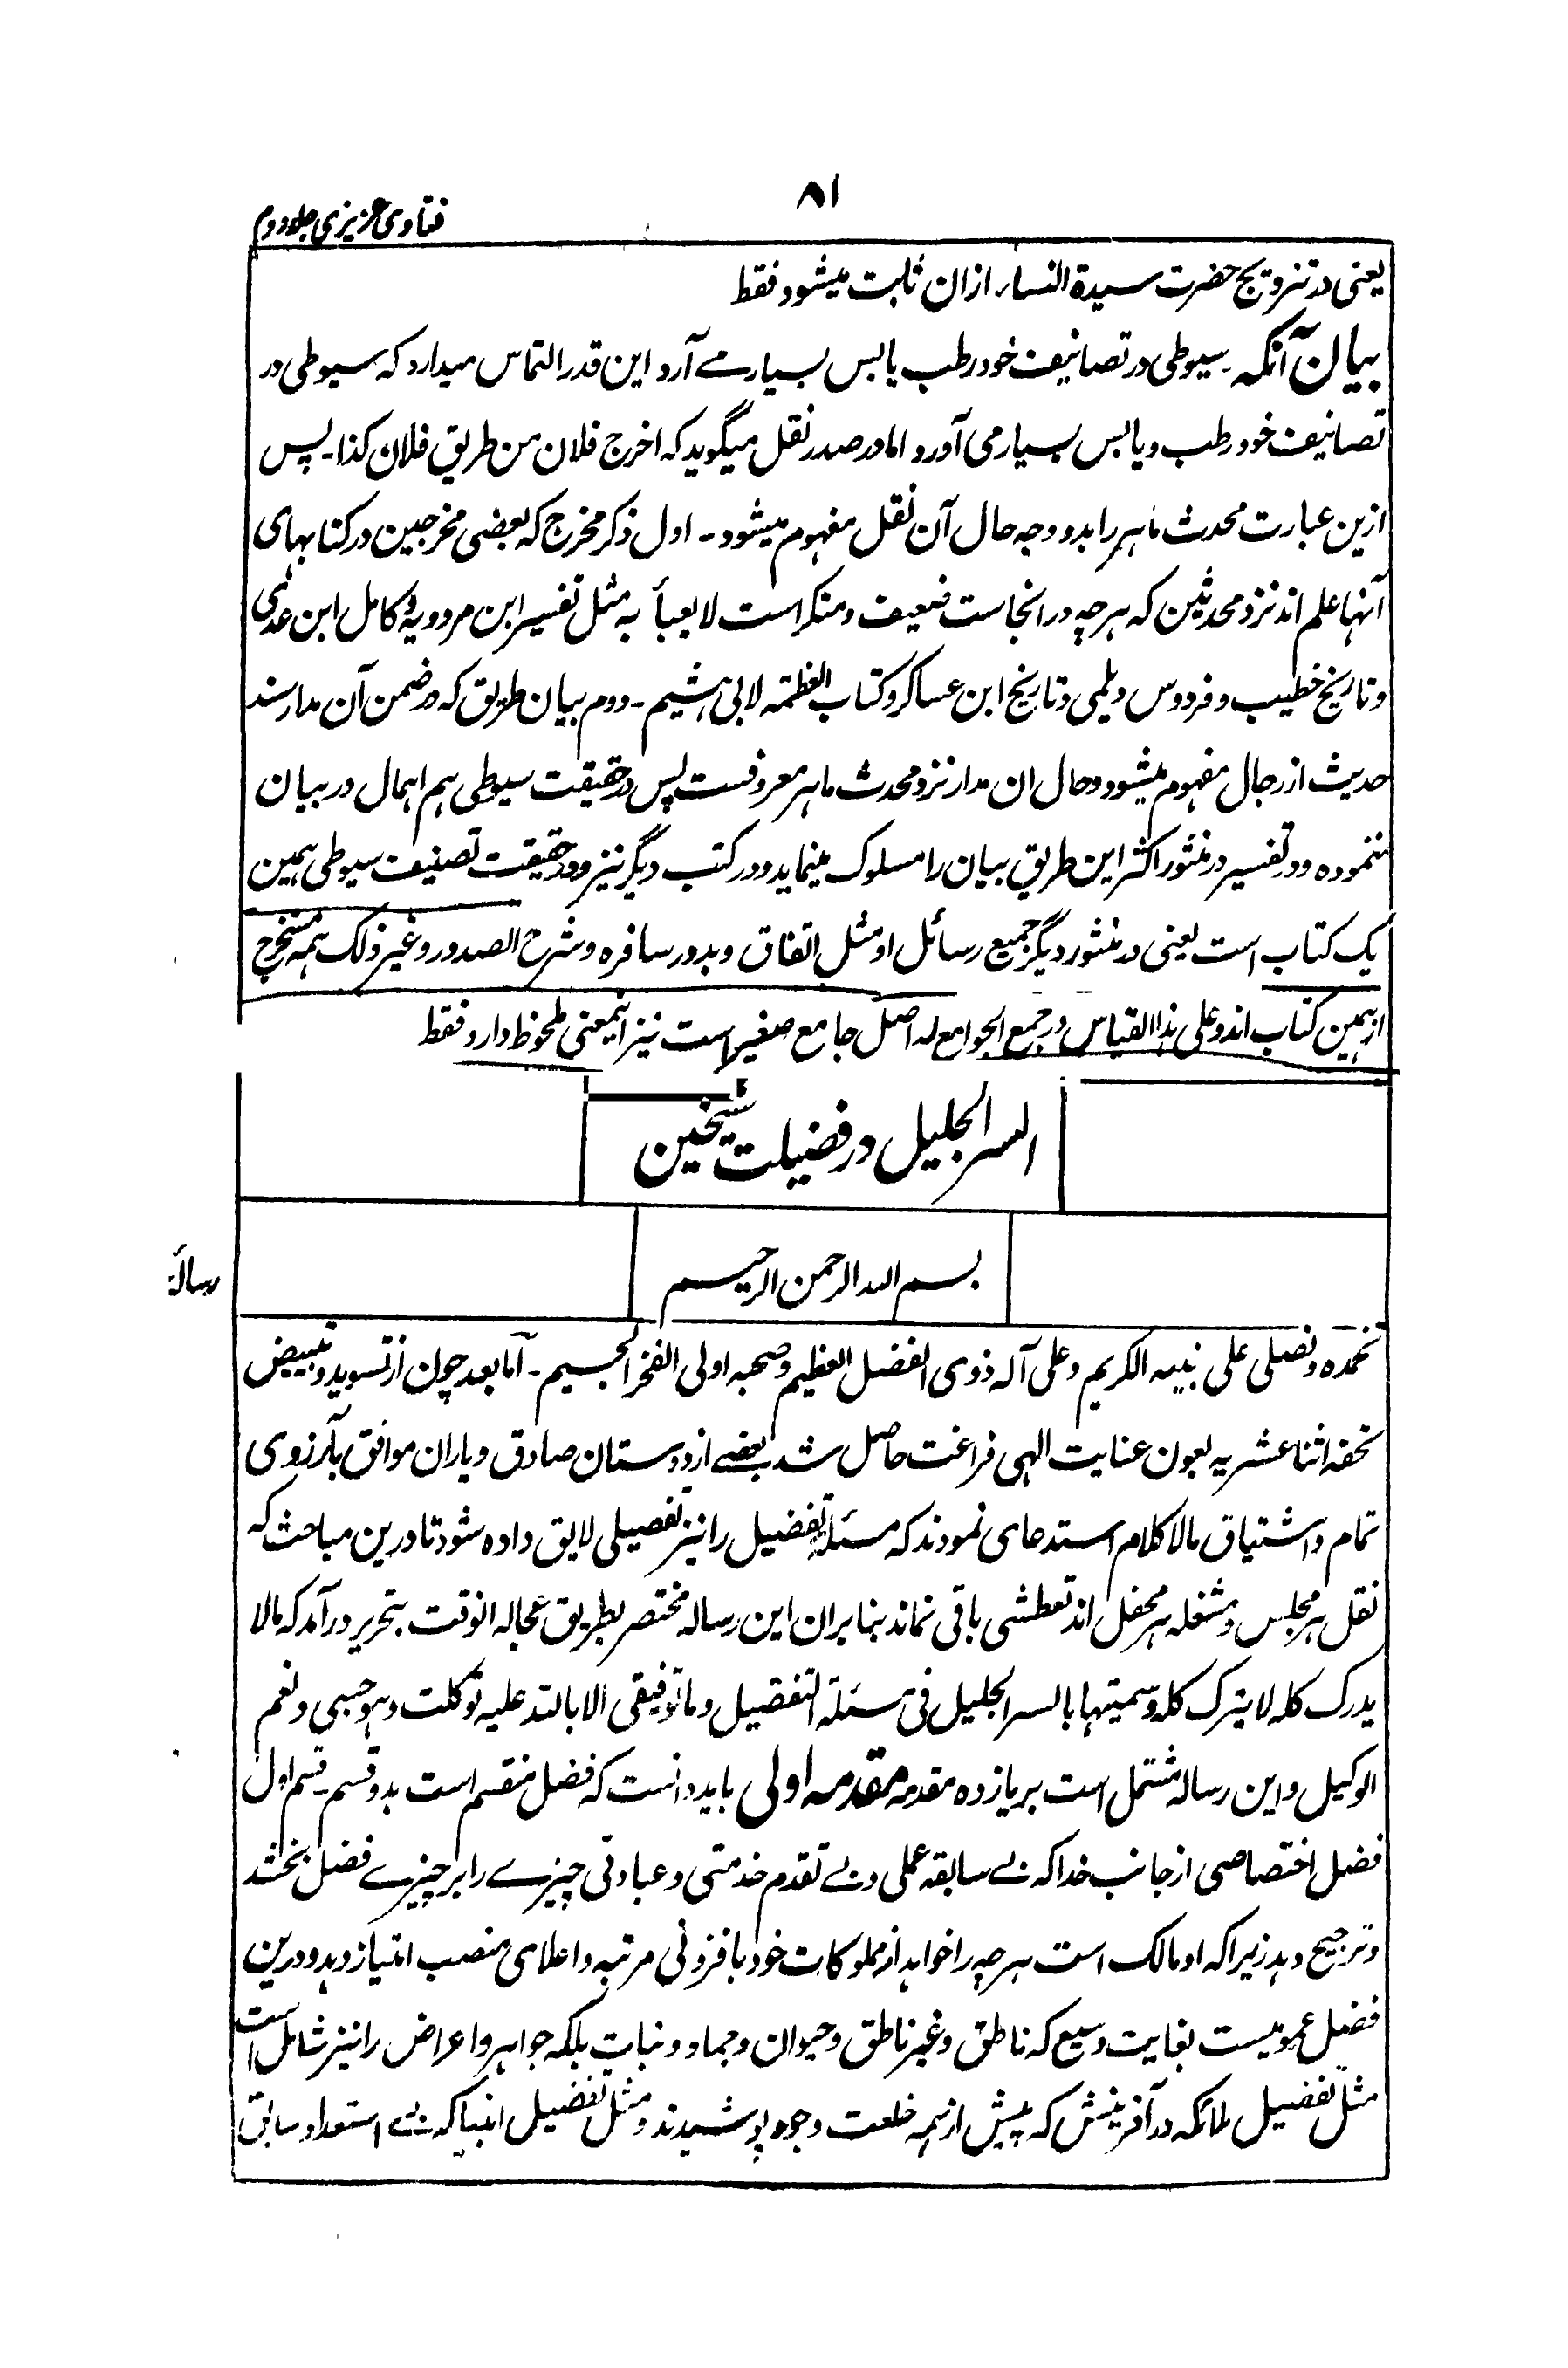 ۸۱
فتاوی عزیزی جلد دوم
یعنی در تزویج حضرت سیدة النساء ازان ثابت میشود فقط
بیان آنکه سیوطی در تصانیف خود رطب یابس بسیار مے آرد این قدر التماس میدارد که سیوطی در
تصانیف خود رطب و یابس بسیار می آورد اما در صدر نقل میگوید که اخرج فلان من طریق فلان کذا۔ پس
ازین عبارت محدث ماهر را بدو وجه حال آن نقل مفهوم میشود۔ اول ذکر مخرج که بعضی مخرجین در کتابهای
آنها علم اند نزد محدثین که هر چه در انجاست ضعیف و منکر است لا یعبأ به مثل تفسیر ابن مردویه و کامل ابن عدی
و تاریخ خطیب و فردوس دیلمی و تاریخ ابن عساکر و کتاب العظمته لابی هشیم۔ دوم بیان طریق که در ضمن آن مدار سند
حدیث از رجال مفهوم میشود و حال ان مدار نزد محدث ماهر معروفست پس در حقیقت سیوطی هم اهمال در بیان
ننموده و در تفسیر در منثور اکثر این طریق بیان را مسلوک مینماید و در کتب دیگر نیز و در حقیقت تصنیف سیوطی همین
یک کتاب است یعنی در منثور دیگر جمیع رسائل او مثل اتقان و بدور سافره و شرح الصدور و غیر ذلک همه مستخرج
از همین کتاب اند و علی هذا القیاس در جمع الجوامع له اصل جامع صغیر است نیز اینمعنی ملحوظ دارد فقط
السر الجلیل در فضیلت شیخین
بسم الله الرحمن الرحیم
رسالہ
نحمده و نصلی علی نبیه الکریم و علی آله ذوی الفضل العظیم و صحبه اولی الفخر الجسیم۔ اما بعد چون از تسوید و تبییض
تحفه اثنا عشریه بعون عنایت الهی فراغت حاصل شد بعضے از دوستان صادق و یاران موافق بآرزوی
تمام و اشتیاق مالا کلام استدعای نمودند که مسئلہ تفضیل را نیز تفصیلی لایق داده شود تا درین مباحث که
نقل هر مجلس و مشغله هر محفل اند تعطشی باقی نماند بنابران این رساله مختصر بطریق عجاله الوقت بتحریر در آمد که مالا
یدرک کله لا یترک کله و سمیتها بالسر الجلیل فی مسئلة التفضیل و ما توفیقی الا بالله علیه توکلت و هو حسبی و نعم
الوکیل و این رساله مشتمل است بر یازده مقدمه مقدمه اولی باید دانست که فضل منقسم است بدو قسم۔ قسم اول
فضل اختصاصی از جانب خدا که بے سابقه عملی و بے تقدم خدمتی و عبادتی چیزے را بر چیزے فضل بخشد
و ترجیح دهد زیرا که او مالک است هر چه را خواهد از مملوکات خود با فزونی مرتبه و اعلای منصب امتیاز دهد و درین
فضل عمومیست بغایت وسیع که ناطق و غیر ناطق و حیوان و جماد و نبات بلکه جواهر و اعراض را نیز شامل است
مثل تفضیل ملائکه در آفرینش که پیش از همه خلعت وجود پوشیدند و مثل تفضیل انبیا که بے استعداد سابق